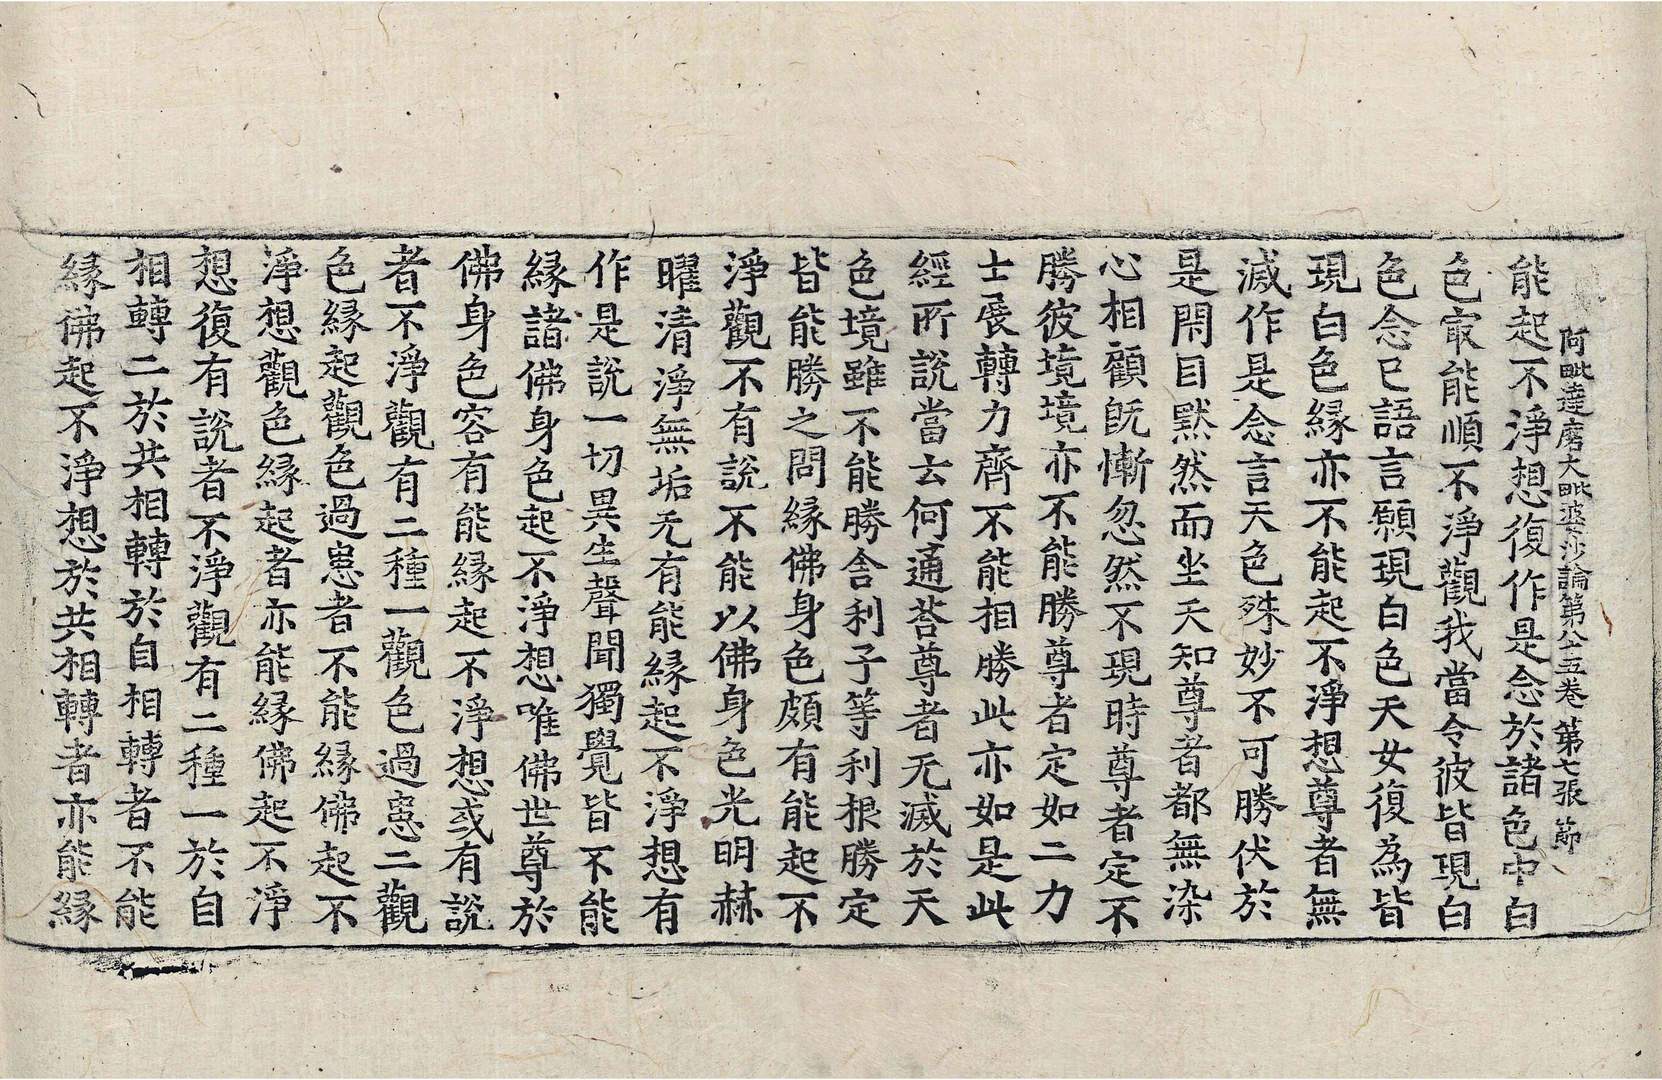 阿毗達磨大毗婆沙論第八十五卷 第七張 節
能起不淨想復作是念於諸色中白
色㝡能順不淨觀我當令彼皆現白
色念已語言願現白色天女復為皆
現白色緣亦不能起不淨想尊者無
滅作是念言天色殊妙不可勝伏於
是閇目默然而坐天知尊者都無染
心相顧旣慚忽然不現時尊者定不
勝彼境境亦不能勝尊者定如二力
士展轉力齊不能相勝此亦如是此
經所說當云何通荅尊者无滅於天
色境雖不能勝舍利子等利根勝定
皆能勝之問緣佛身色頗有能起不
淨觀不有說不能以佛身色光明赫
曜清淨無垢无有能緣起不淨想有
作是說一切異生聲聞獨覺皆不能
緣諸佛身色起不淨想唯佛世尊於
佛身色容有能緣起不淨想或有說
者不淨觀有二種一觀色過患二觀
色緣起觀色過患者不能緣佛起不
淨想觀色緣起者亦能緣佛起不淨
想復有說者不淨觀有二種一於自
相轉二於共相轉於自相轉者不能
緣佛起不淨想於共相轉者亦能緣